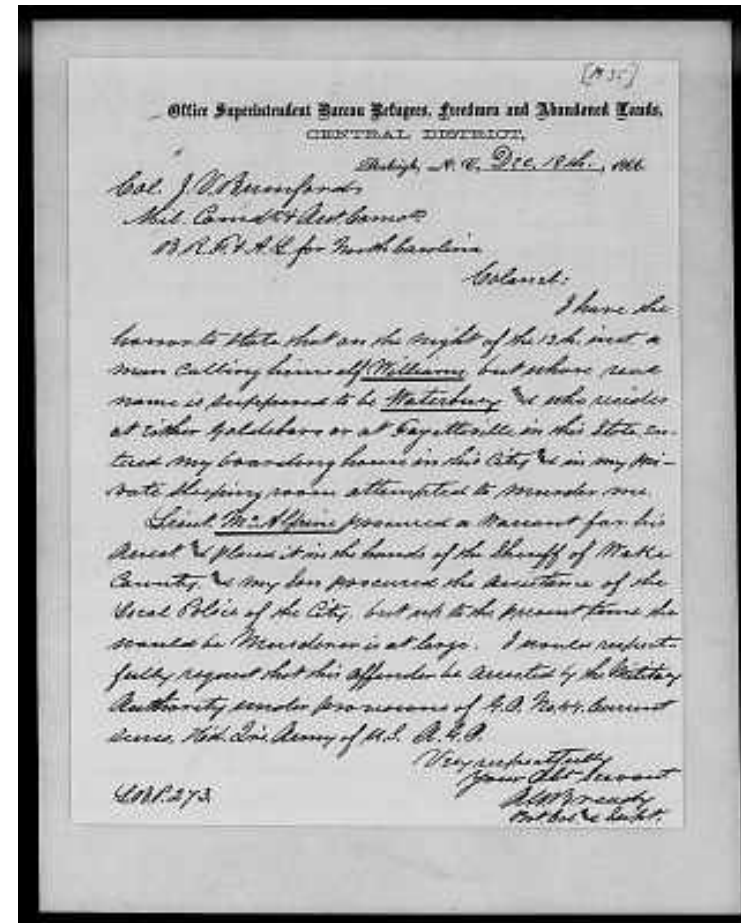 Office Superintendent Bureau Refugees, Freedmen and Abandoned Lands,
CENTRAL DISTRICT,
Raleigh, N. C., Dec. 18th., 1866
Col. J. V. Bomford
Mil. Comdt & Asst Comr
B R. F. & A. L for North Carolina
Colonel:
I have the
honor to state that on the night of the 13th. inst. a
man calling himself Williams but whose real
name is supposed to be Waterbury & who resides
at either Goldsboro or at Fayetteville in this State, en-
tered my boarding house in this City, & in my pri-
vate sleeping room attempted to murder me.
Lieut. McAlpine procured a warrant for his
arrest & placed it in the hands of the Sheriff of Wake
County, & my son procured the assistance of the
Local Police of the City, but up to the present time the
would be Murderer is at large. I would respect-
fully request that this offender be arrested by the Military
Authority under provisions of G.O. No. 44, Current
series, Hd. Qrs. Army of U.S. A.G.O.
Very respectfully
your Obt servant
Bvt Col & Supt.